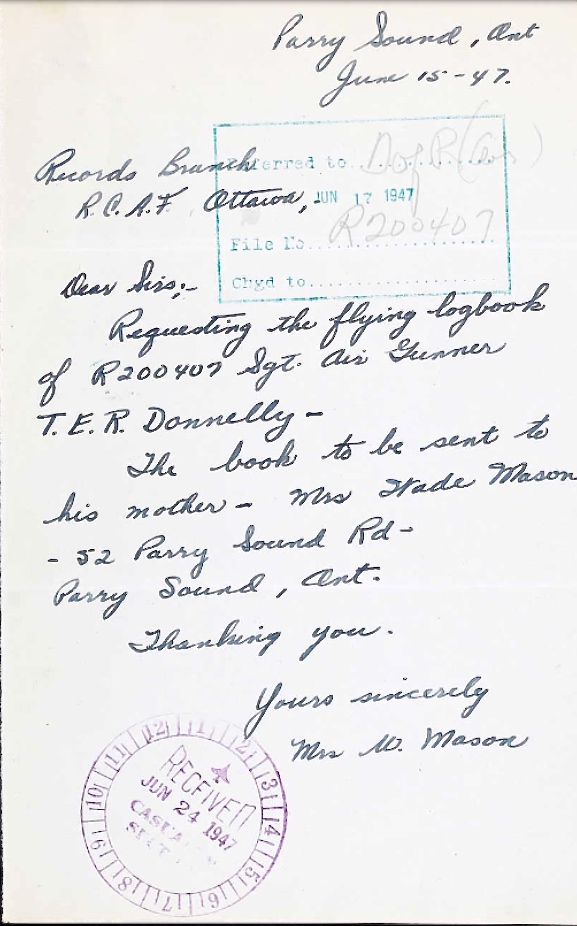 Parry Sound, Ont
June 15-47.
Records Branch
R.C.A.F. Ottawa,
Referred to D of R (Air)
JUN 17 1947
File No. R200407
Chgd to
Dear Sirs;-
Requesting the flying logbook
of R200407 Sgt. Air Gunner
T.E.R. Donnelly -
The book to be sent to
his mother - Mrs Wade Mason
- 52 Parry Sound Rd -
Parry Sound, Ont.
Thanking you.
Yours sincerely
Mrs W. Mason
12 1 2 3 4 5 6 7 8 9 10 11
RECEIVED
JUN 24 1947
CASUALTY
SECT